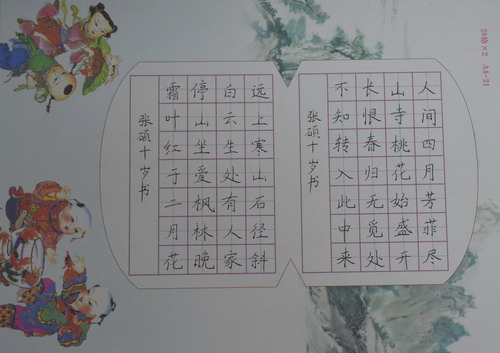 人间四月芳菲尽
山寺桃花始盛开
长恨春归无觅处
不知转入此中来
张硕十岁书
远上寒山石径斜
白云生处有人家
停山坐爱枫林晚
霜叶红于二月花
张硕十岁书
28格×2